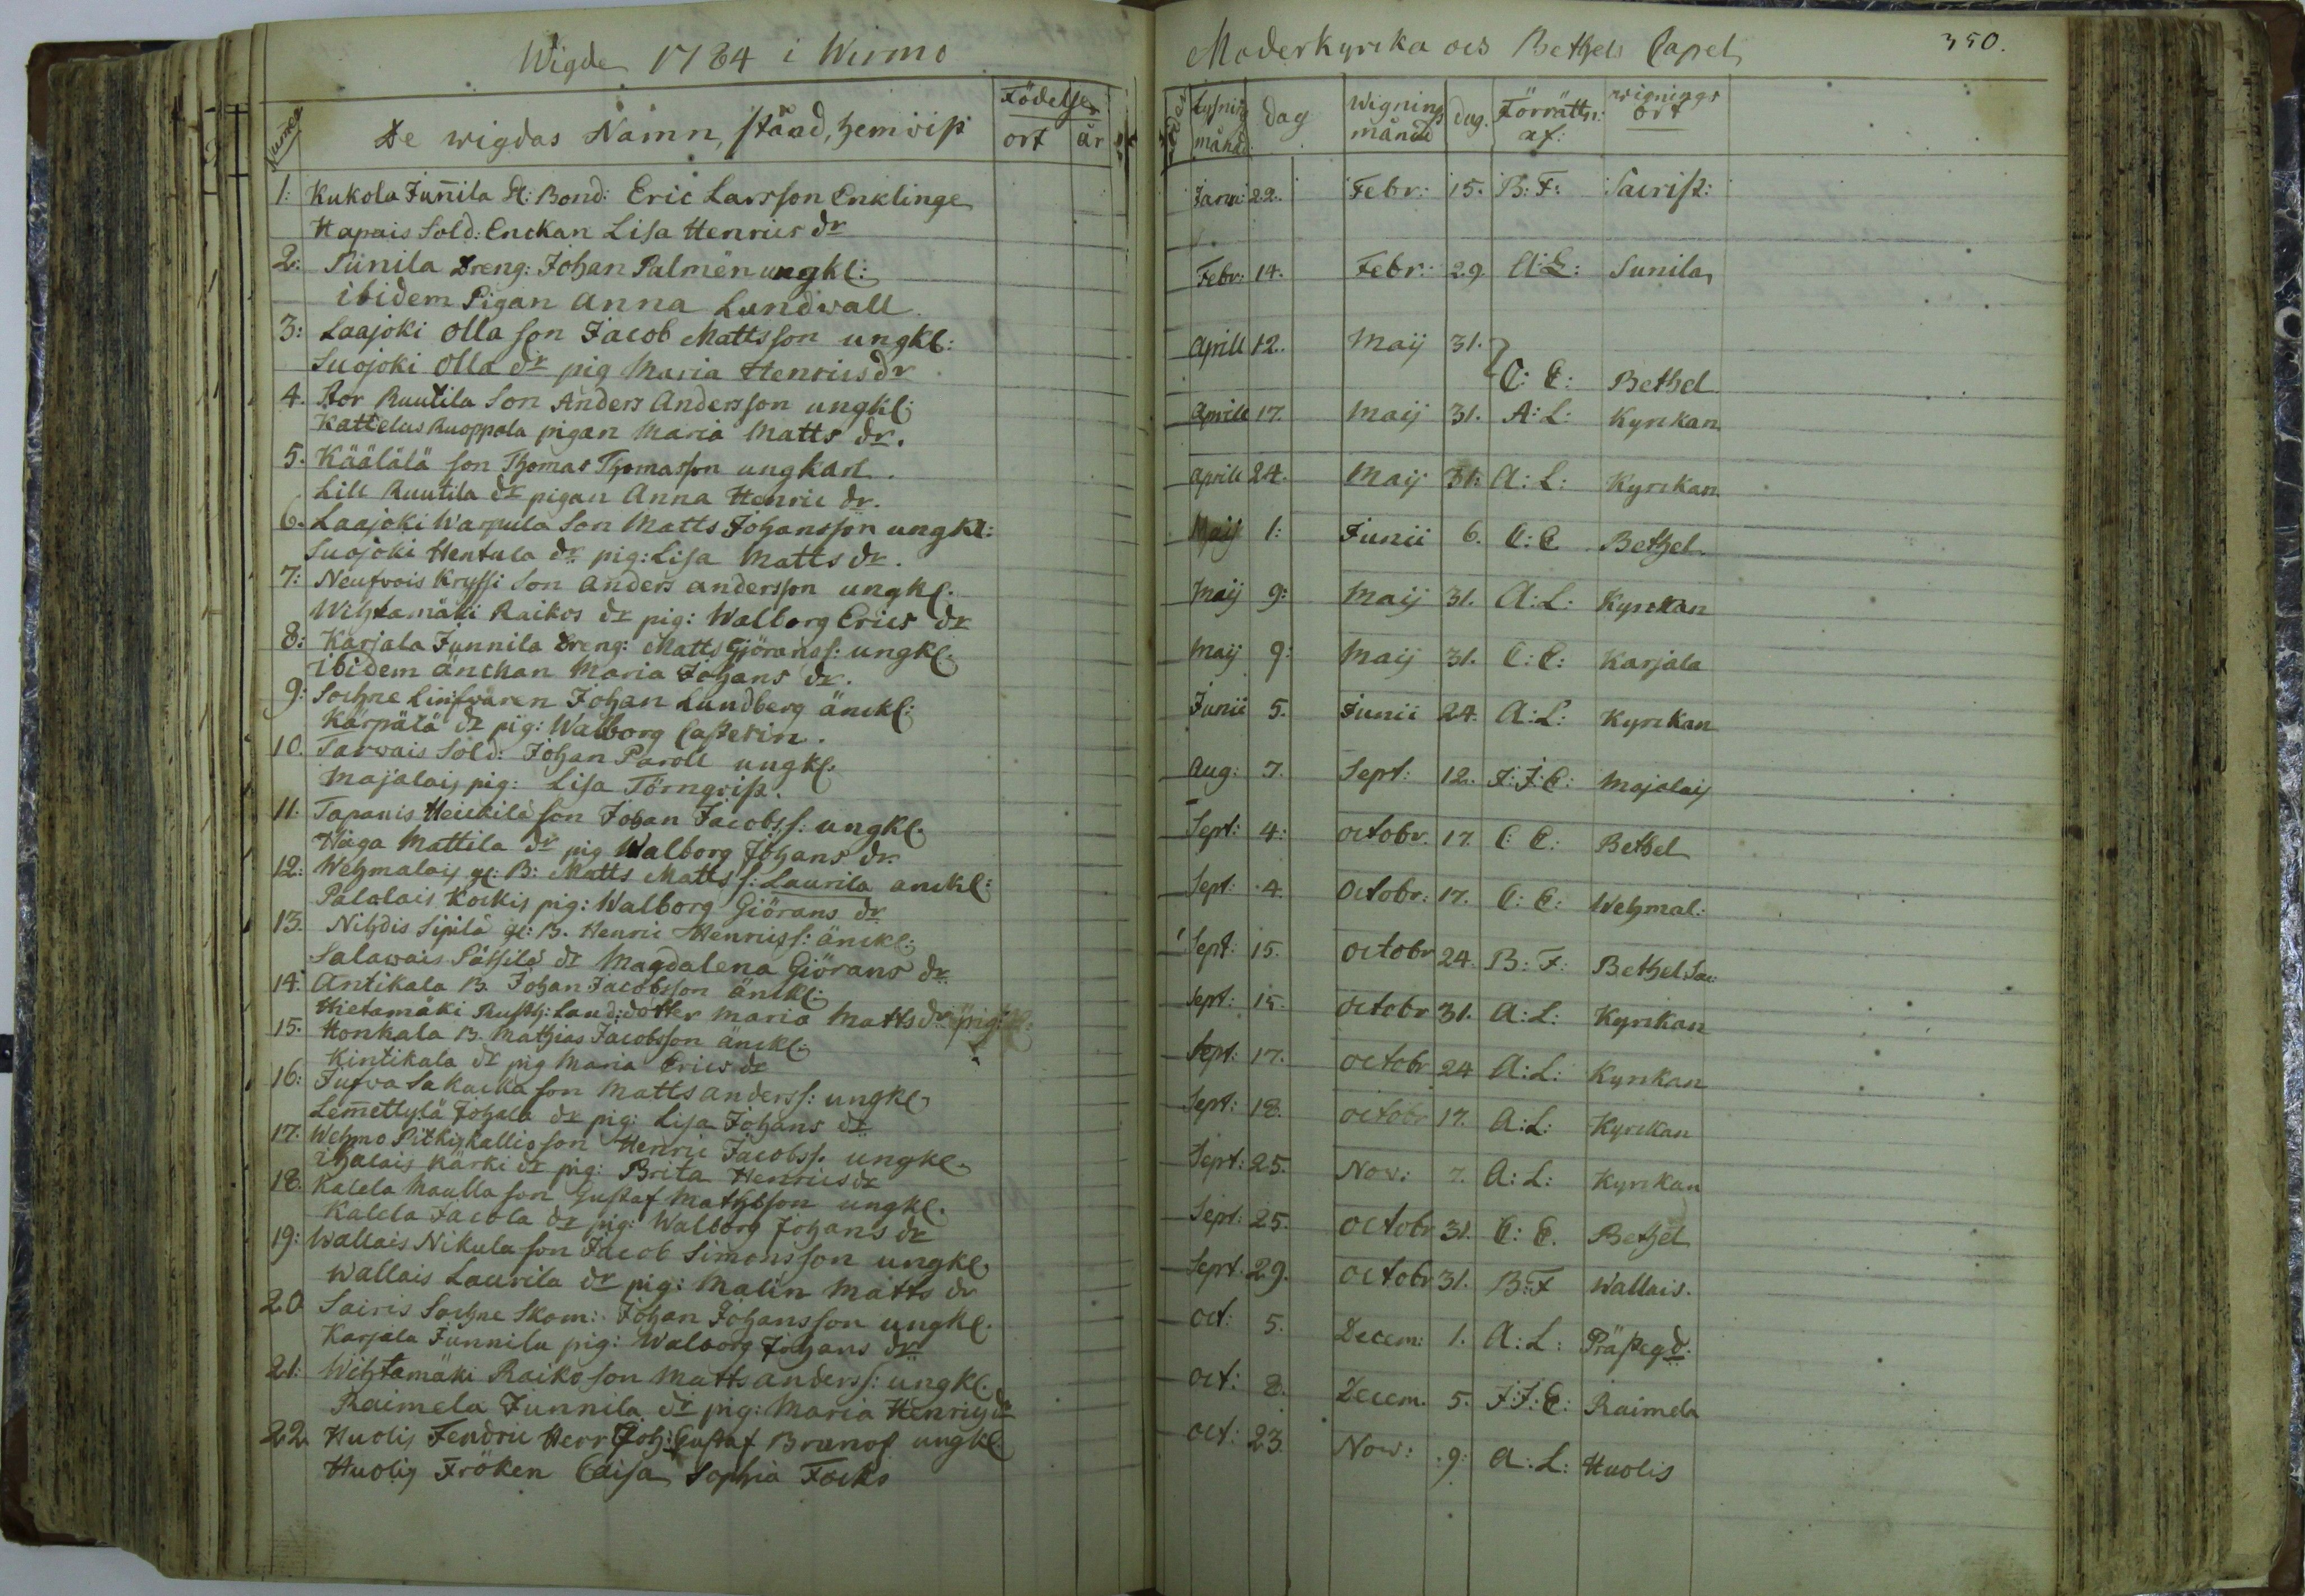 Wigde 1784 i Wirmo
Numer
De wigdas Namn, ståad, hemvist
Födelse
ort år
1: Kukola Jun̄ila gl: Bond: Eric Larsson Enklinge
Hapais Sold: Enckan Lisa Henrics dr
2: Sunila Dreng: Johan Palmén ungkl:
ibidem Pigan Anna Lundwall
3: Laajoki Olla son Jacob Mattsson ungkl:
Suojoki Olla dr pig Maria Henricsdr
4. Stor Ruutila Son Anders Andersson ungkl:
Kattelus Ruoppala pigan Maria Matts dr.
5. Käälälä son Thomas Thomasson ungkarl.
Lill Ruutila dr pigan Anna Henric dr.
6. Laajoki Warpula Son Matts Johansson ungkl:
Suojoki Hentula dr pig: Lisa Matts dr.
7: Neufvois Kryssi Son Anders andersson ungkl.
Wihtamäki Raikos dr pig: Walborg Erics dr
8: Karjala Junnila Dreng: Matts Giöranss: ungkl.
ibidem änckan Maria Johans dr.
9: Sochne Linfvären Johan Lundberg änckl:
Kärpälä dr pig: Walborg Casterin.
10. Tarvais Sold: Johan Paroll ungkl.
Majalais pig: Lisa Törnqvist.
11. Tapanis Heickilä son Johan Jacobss: ungkl.
Haga Mattila dr pig Walborg Johans dr.
12: Wehmalais gl: B: Matts Matts s: Laurila anckl:
Palalais Kockis pig: Walborg Giörans dr
13. Nihdis Sipilä gl: B. Henric Henricss: änckl:
Salawais Pässilä dr Magdalena Giörans dr
14. Antikala B. Johan Jacobsson änckl:
Hietamäki Rusth: Laud: dotter Maria Matts dr pig:
15. Honkala B. Mathias Jacobsson änckl:
Kintikala dr pig Maria Erics dr
16: Jufva Sakacka son Matts anderss: ungkl.
Lem̄ettylä Johala dr pig: Lisa Johans dr
17. Wehmo Pitkiskallio son Henric Jacobss. ungkl.
ihalais Kärki dr pig: Brita Henricsdr
18. Kalela Maulla son Gustaf Mathsson ungkl.
Kalela Jacola dr pig: Walborg Johans dr
19: Wallais Nikula son Jacob Simonsson ungkl.
Wallais Laurila dr pig: Malin Matts dr
20 Sairis Sochne Skom: Johan Johansson ungkl.
Karjala Junnila pig: Walborg Johans dr
21: Wihtamäki Raiko son Matts anderss: ungkl.
Raimela Junnila dr pig: Maria Henrics dr
22 Huolis Fendric Herr Joh: Gustaf Brunof ungkl.
Huolis Fröken Caisa Sophia Focks
Moderkyrcka och Bethels Capel
350.
Lysnings månad. dag Wignings månad dag. Förrättn: af: wignings ort
Janu: 22. Febr: 15. B: F: Sacrist:
Febr: 14. Febr: 29 A: L: Sunila
Aprill 12. Maij 31. C: C: Bethel
Aprill 17. Maij 31. A: L: Kyrckan
Aprill 24. Maij 31: A: L: Kyrckan
Maij 1: Junii 6. C: C. Bethel.
Maij 9: Maij 31. A: L: Kyrckan
Maij 9: Maij 31. C: C: Karjala
Junii 5. Junii 24. A: L: Kyrckan
Aug: 7. Sept: 12. J: J: C: Majalais
Sept: 4: octobr. 17. C: C: Bethel
Sept: 4. Octobr: 17. C: C: Wehmal:
Sept: 15. octobr 24. B: F: Bethel Sac:
Sept: 15. octobr 31. A: L: Kyrckan
Sept: 17. octobr 24 A: L: Kyrckan
Sept: 18. octobr 17. A: L: Kyrckan
Sept: 25. Nov: 7. A: L: Kyrckan
Sept: 25. octobr 31. C: C. Bethel
Sept. 29. octobr 31. B: F Wallais.
oct: 5. Decem: 1. A: L: Prästegd.
oct: 8. Decem. 5. J: J: C: Raimela
oct: 23. Nov: 9: A: L: Huolis